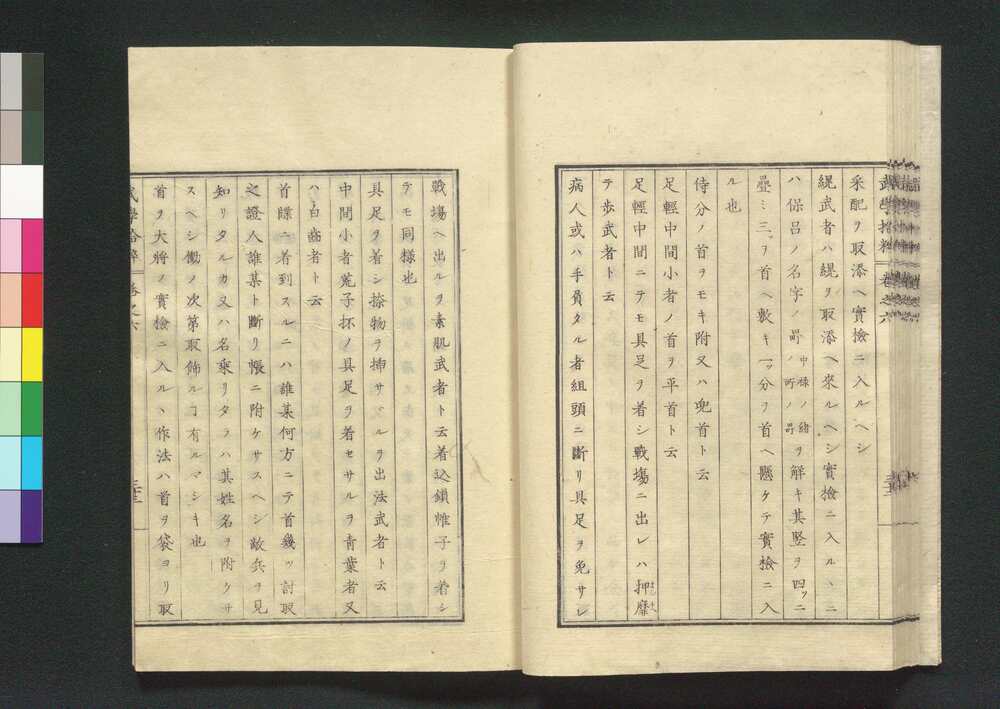 武學拾粹 卷之六
采配ヲ取添ヘ實檢ニ入ルヘシ
緄武者ハ緄ヲ取添ヘ來ルヘシ實檢ニ入ルヽニ
ハ保呂ノ名字ノ
中祿ノ緒
ヲ解キ其竪ヲ四ッニ
疊ミ三ッヲ首ヘ敷キ一ッ分ヲ首ヘ懸ケテ實檢ニ入
ル也
侍分ノ首ヲモキ附又ハ兜首ト云
足輕中間小者ノ首ヲ平首ト云
足輕中間ニテモ具足ヲ着シ戰塲ニ出レハ押靡
テ歩武者ト云
病人或ハ手負タル者組頭ニ斷リ具足ヲ免サレ
戰塲ヘ出ルヲ素肌武者ト云着込鎖帷子ヲ着シ
テモ同樣也
具足ヲ着シ捺物ヲ揷サヾルヲ出法武者ト云
中間小者荒子抔ノ具足ヲ着セサルヲ青葉者又
ハ白齒者ト云
首帳ニ着到スルニハ誰某何方ニテ首幾ッ討取
之證人誰某ト斷リ帳ニ附ケサスヘシ敵兵ヲ見
知リタルカ又ハ名乘リタラハ其姓名ヲ附クサ
スヘシ働ノ次第取飾ルヿ有ルマシキ也
首ヲ大將ノ實檢ニ入ルヽ作法ハ首ヲ袋ヨリ取
武學拾粹 卷之六